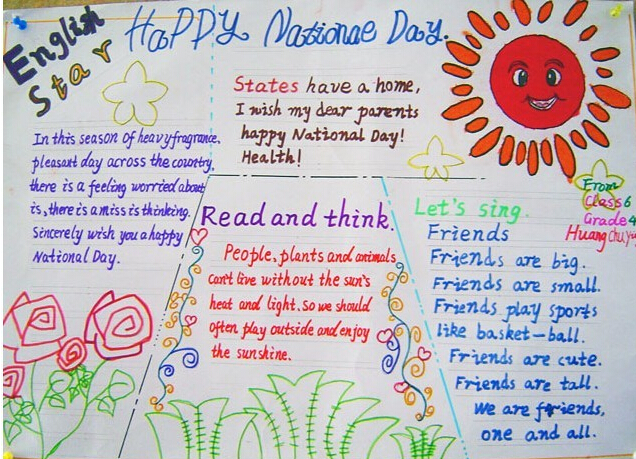 English
Star
HaPPY Nationae Day.
States have a home,
I wish my dear parents
happy National Day!
Health!
In this season of heavy fragrance.
pleasant day across the country,
there is a feeling worried about
is, there is a miss is thinking.
Sincerely wish you a happy
National Day.
Read and think.
People, plants and animals
can't live without the sun's
heat and light. So we should
often play outside and enjoy
the sunshine.
From
Class 6
Grade 4
Huang Chu
Let's sing.
Friends
Friends are big.
Friends are small.
Friends play sports
like basket-ball.
Friends are cute.
Friends are tall.
We are friends,
one and all.